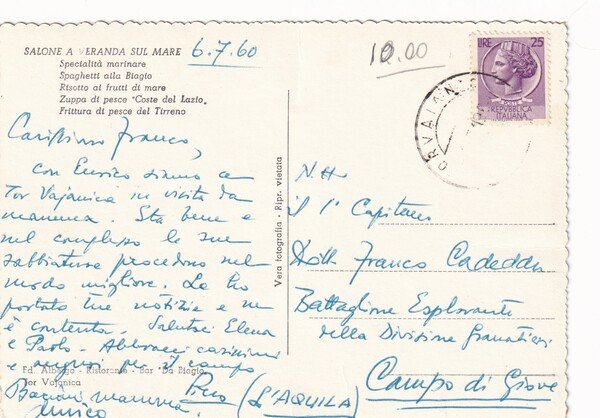 SALONE A VERANDA SUL MARE
Specialità marinare
Spaghetti alla Biagio
Risotto ai frutti di mare
Zuppa di pesce "Coste del Lazio"
Frittura di pesce del Tirreno
6.7.60
10.00
LIRE 25
REPVBBLICA
ITALIANA
Carissimo Franco,
con Enrico siamo a
Tor Vajanica in visita da
mamma. Sta bene e
nel complesso le sue
sabbiature procedono nel
modo migliore. Le ho
portato tue notizie e ne
è contenta. Salutoi Elena
e Paolo. Abbracci carissimi
e auguri per il campo
Piero
Bacioni mamma
Enrico
Ed. Albergo - Ristorante - Bar "Da Biagio"
Tor Vajanica
Vera fotografia - Ripr. vietata
N.H.
il 1° Capitano
Dott. Franco Cadeddu
Battaglione Esplorante
della Divisione Granatieri
Campo di Giove
(L'AQUILA)